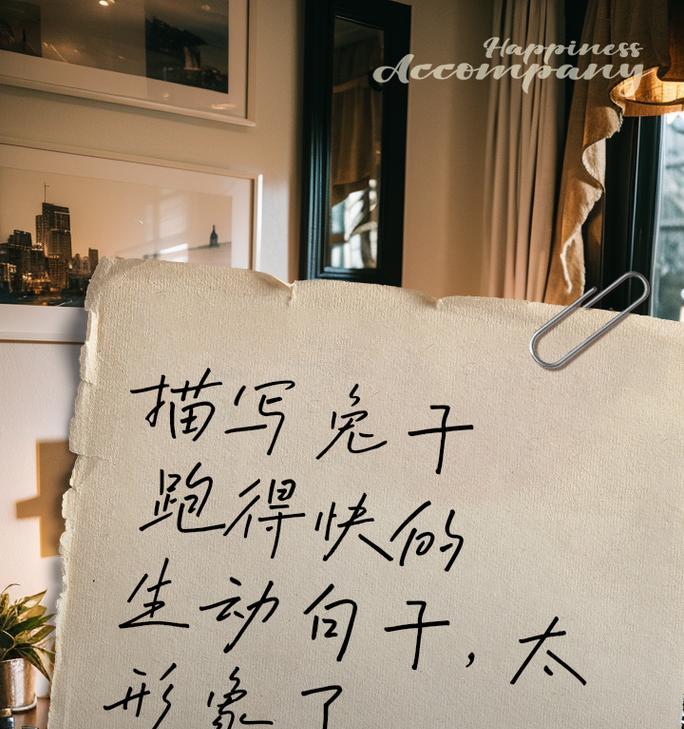 Happiness
Accompany
描写兔子
跑得快的
生动句子，太
形象了